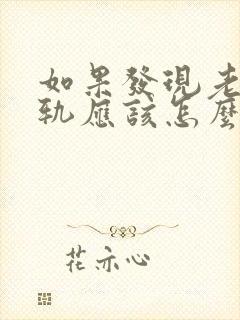 如果發現老
軌應該怎麼
花亦心